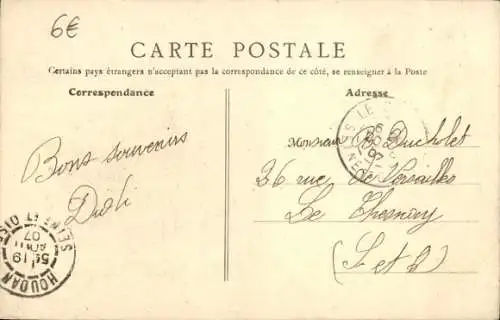 6€
CARTE POSTALE
Certains pays étrangers n'acceptant pas la correspondance de ce côté, se renseigner à la Poste
Correspondance
Adresse
Monsieur Ducholet
Bons souvenirs
36 rue de Versailles
Le Chesnay
(S et O)
HOUDAN
SEINE ET OISE
19
AOUT
07